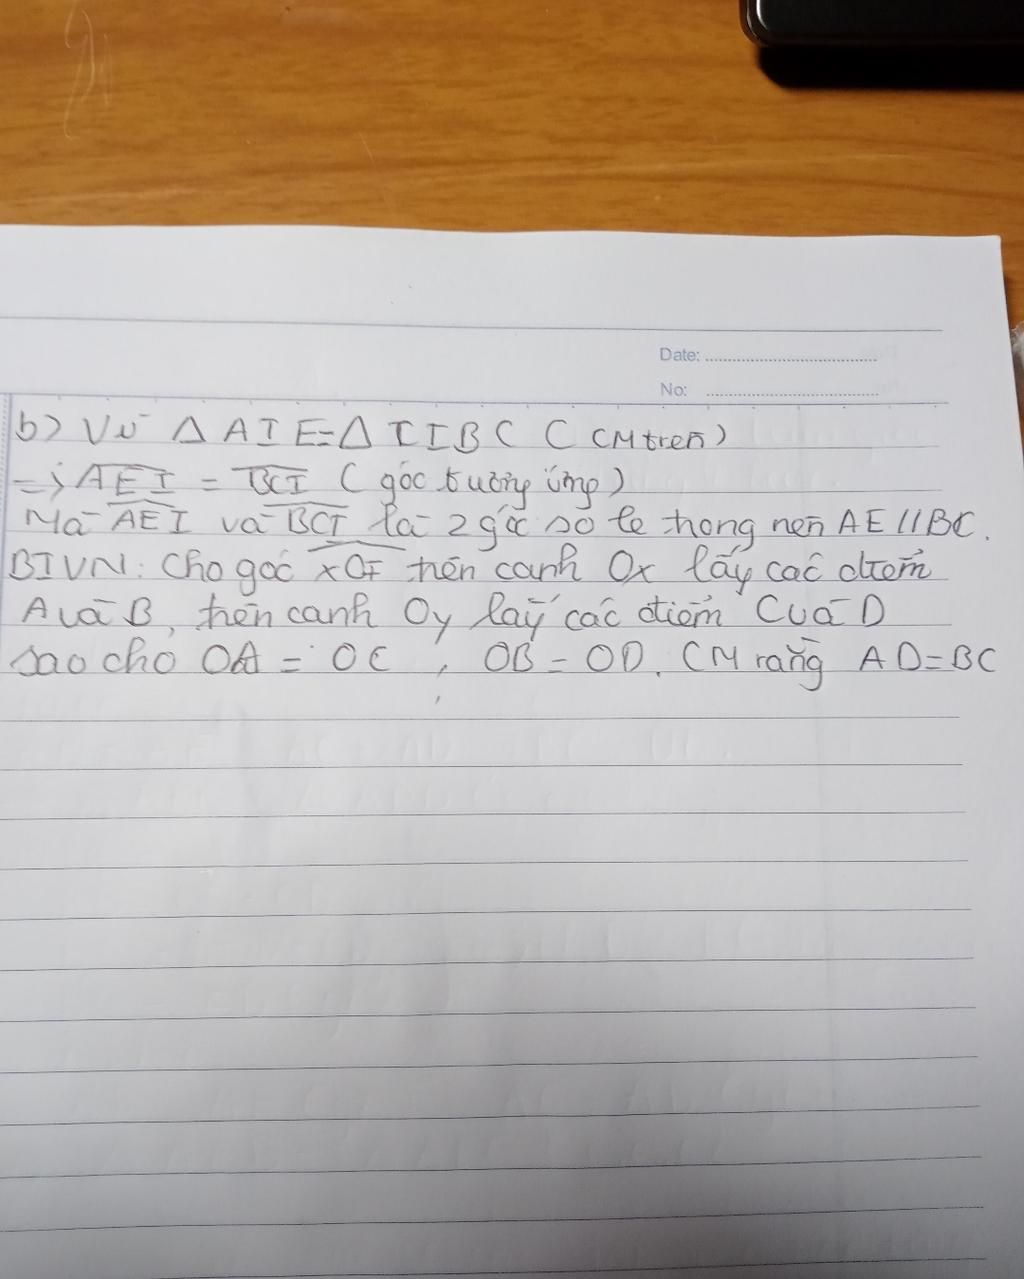 Date: ................
No: ................
b) Vì △ AIE = △ CIBC ( CM trên)
=> AEI = BCI ( góc tương ứng)
Mà AEI và BCI là 2 góc so le trong nên AE // BC.
BTVN: Cho góc xOy trên cạnh Ox lấy các điểm
A và B, trên cạnh Oy lấy các điểm C và D
sao cho OA = OC , OB = OD. CM rằng AD = BC